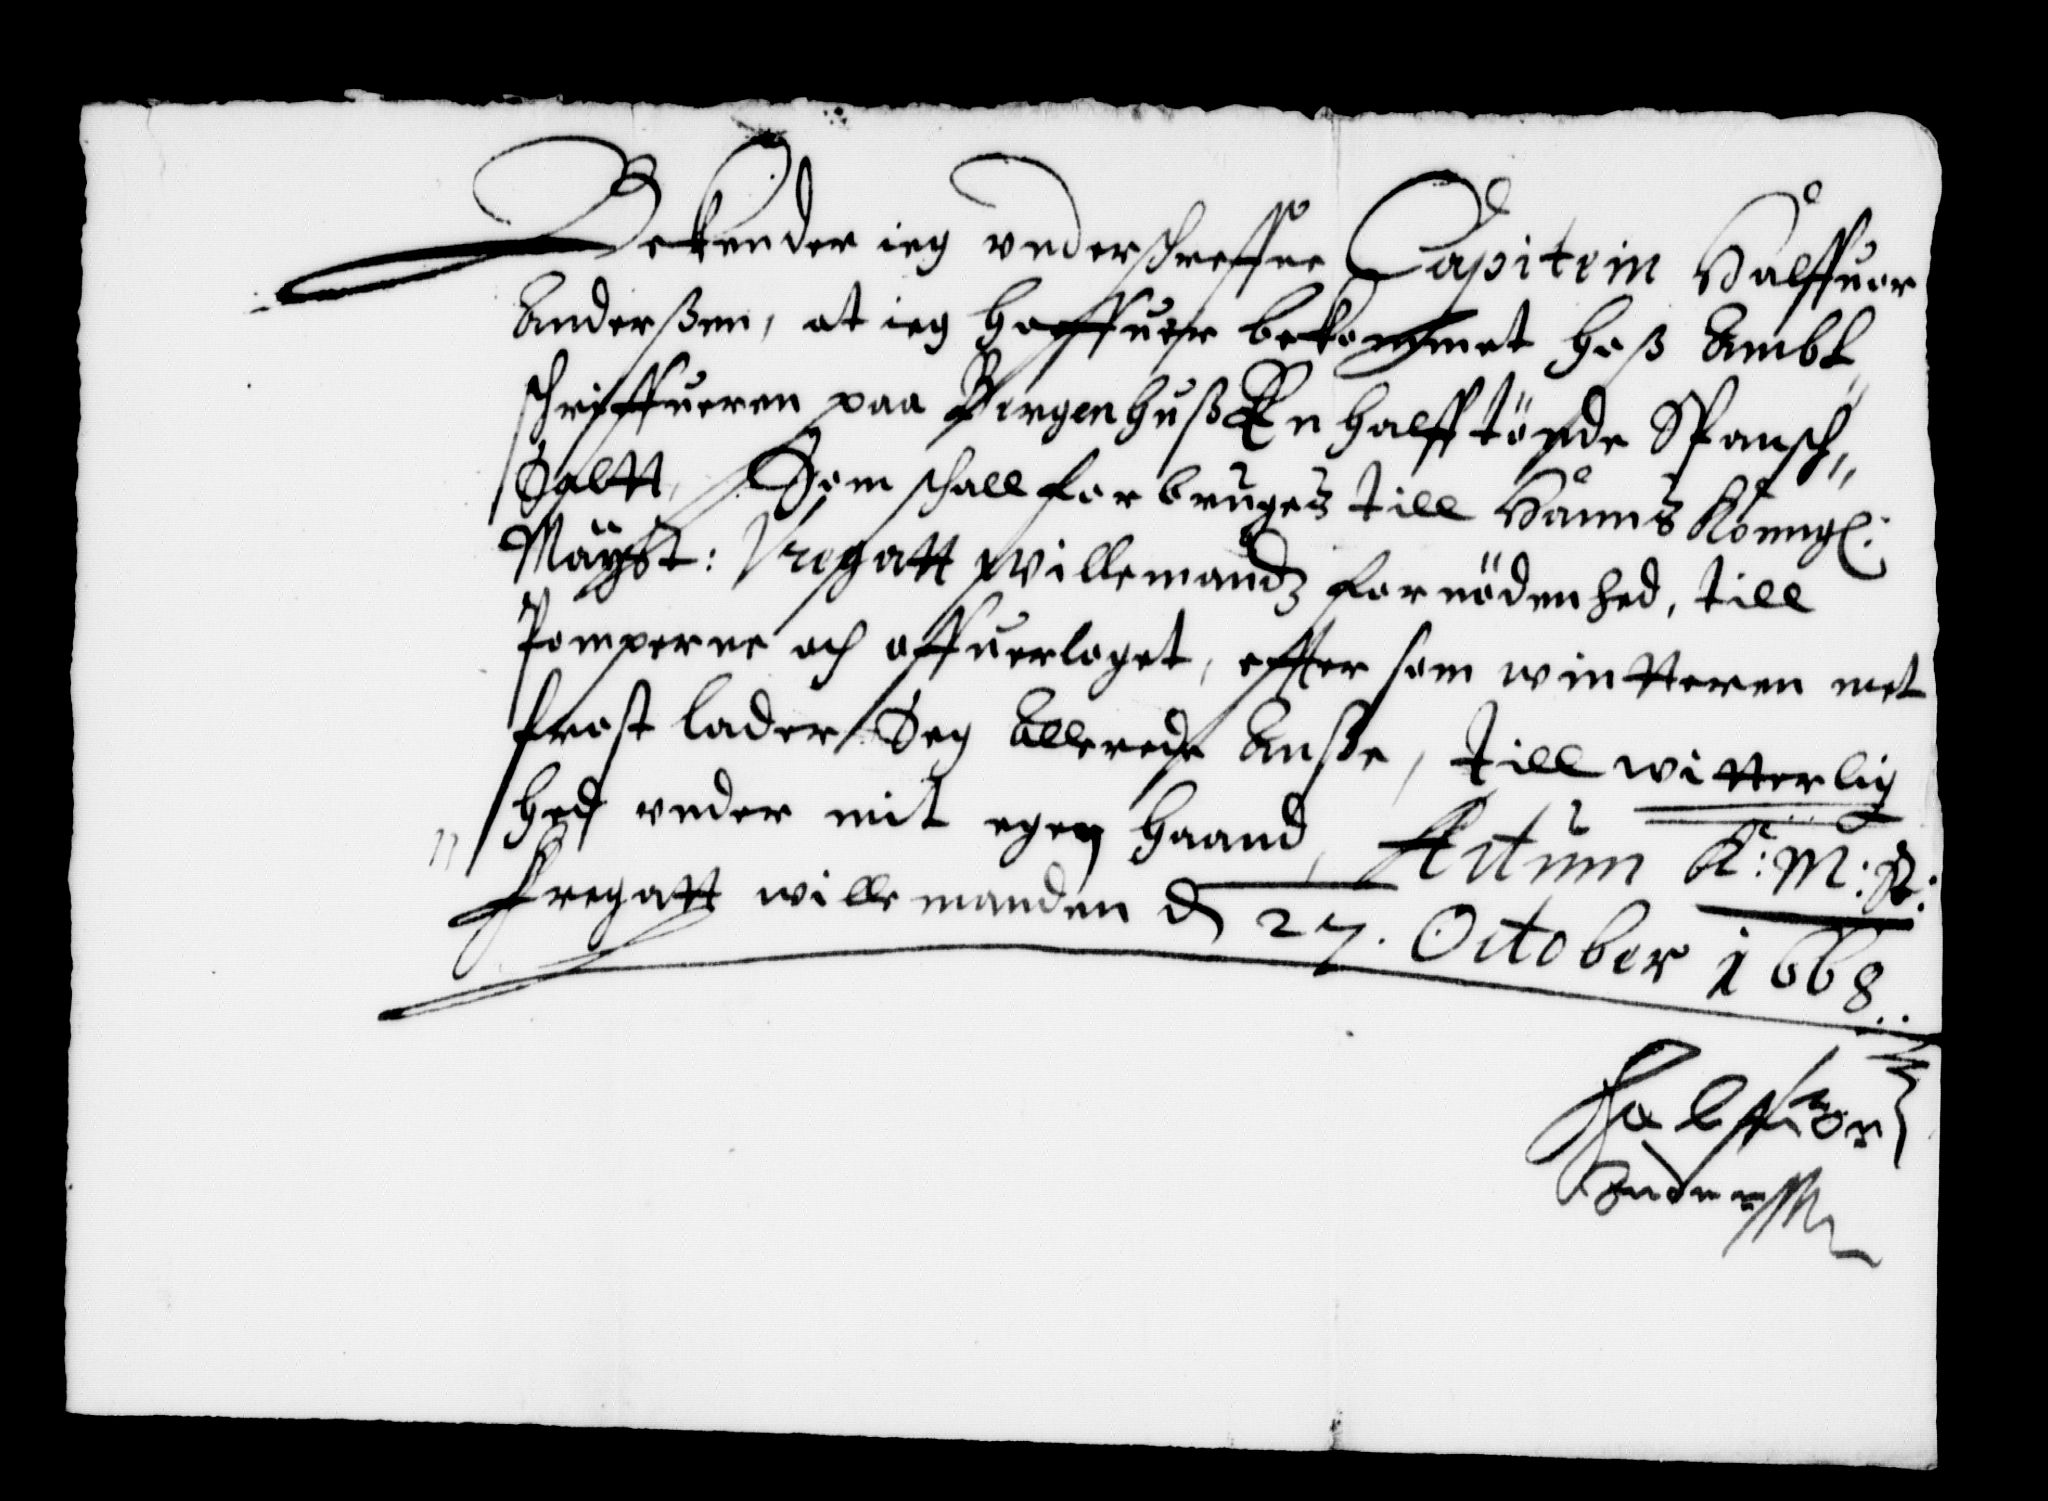 Bekender ieg vnderschreffne Capitein Halffuor
Anderßen, at ieg haffuer bekommet hoß Ambt
schriffueren paa Bergenhuß En halff tönde Spansch
Saltt, Som schall forbruges till Hanns Konngl:
Mäyst: Fregatt Willemandz fornödenhed, till
Pomperne och offuerloget, effter som wintteren met
frost lader Seg Allerede Ansße, till witterlig
hed vnder mit egen Haand, Actum K: M: S:
Fregatt willemanden d 27. October 1668..
Halffuor
Anderssen